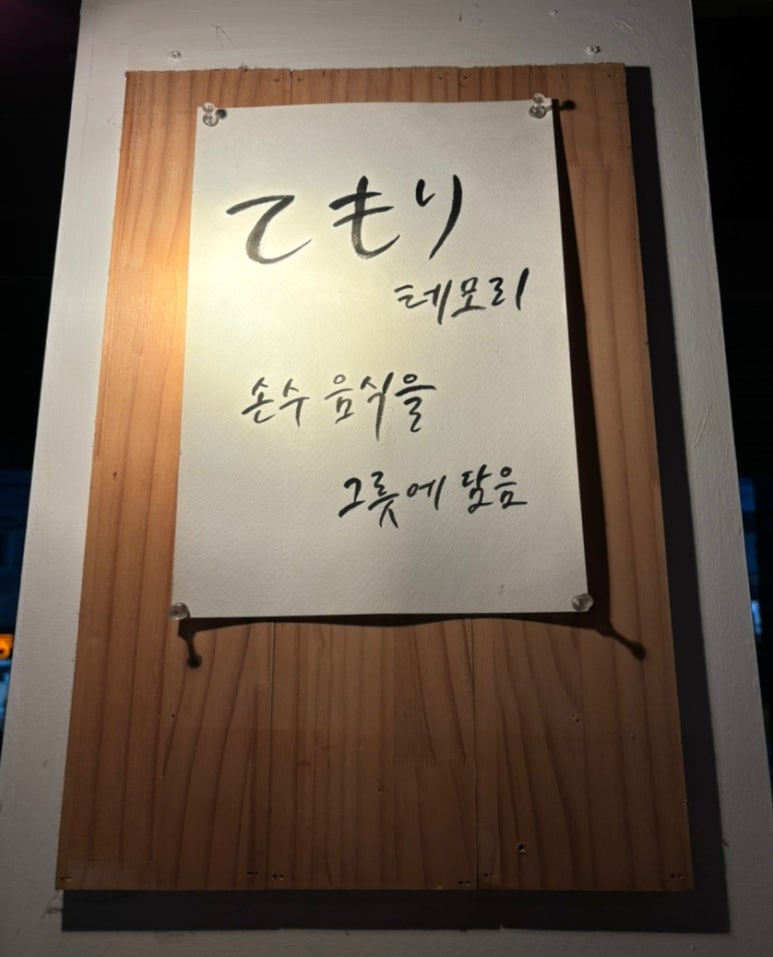 てもり
테모리
손수 음식을
그릇에 담음